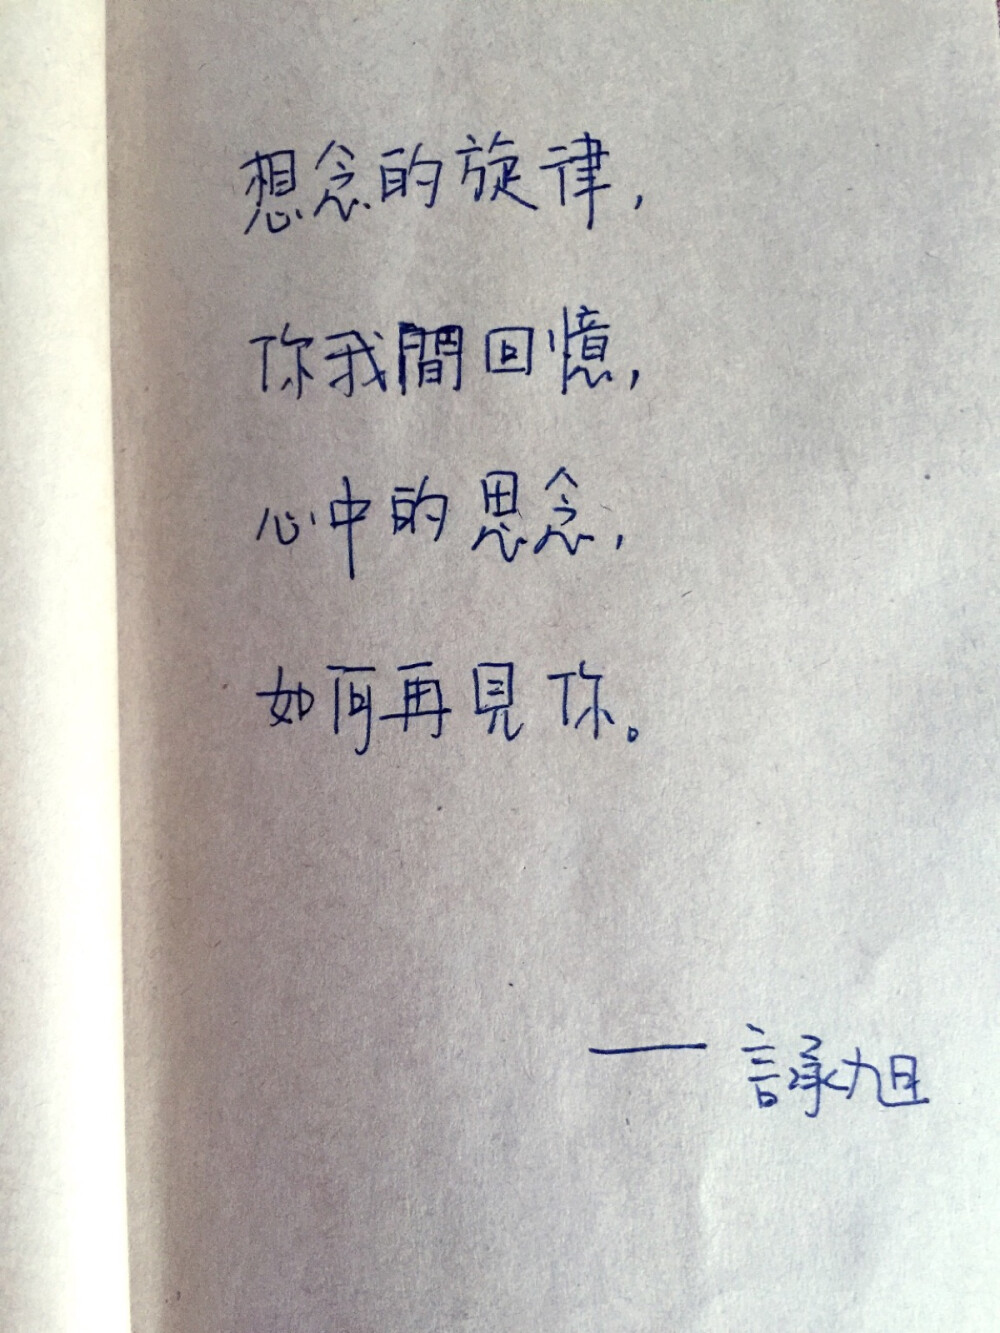 想念的旋律，
你我間回憶，
心中的思念，
如何再見你。
——詠旭